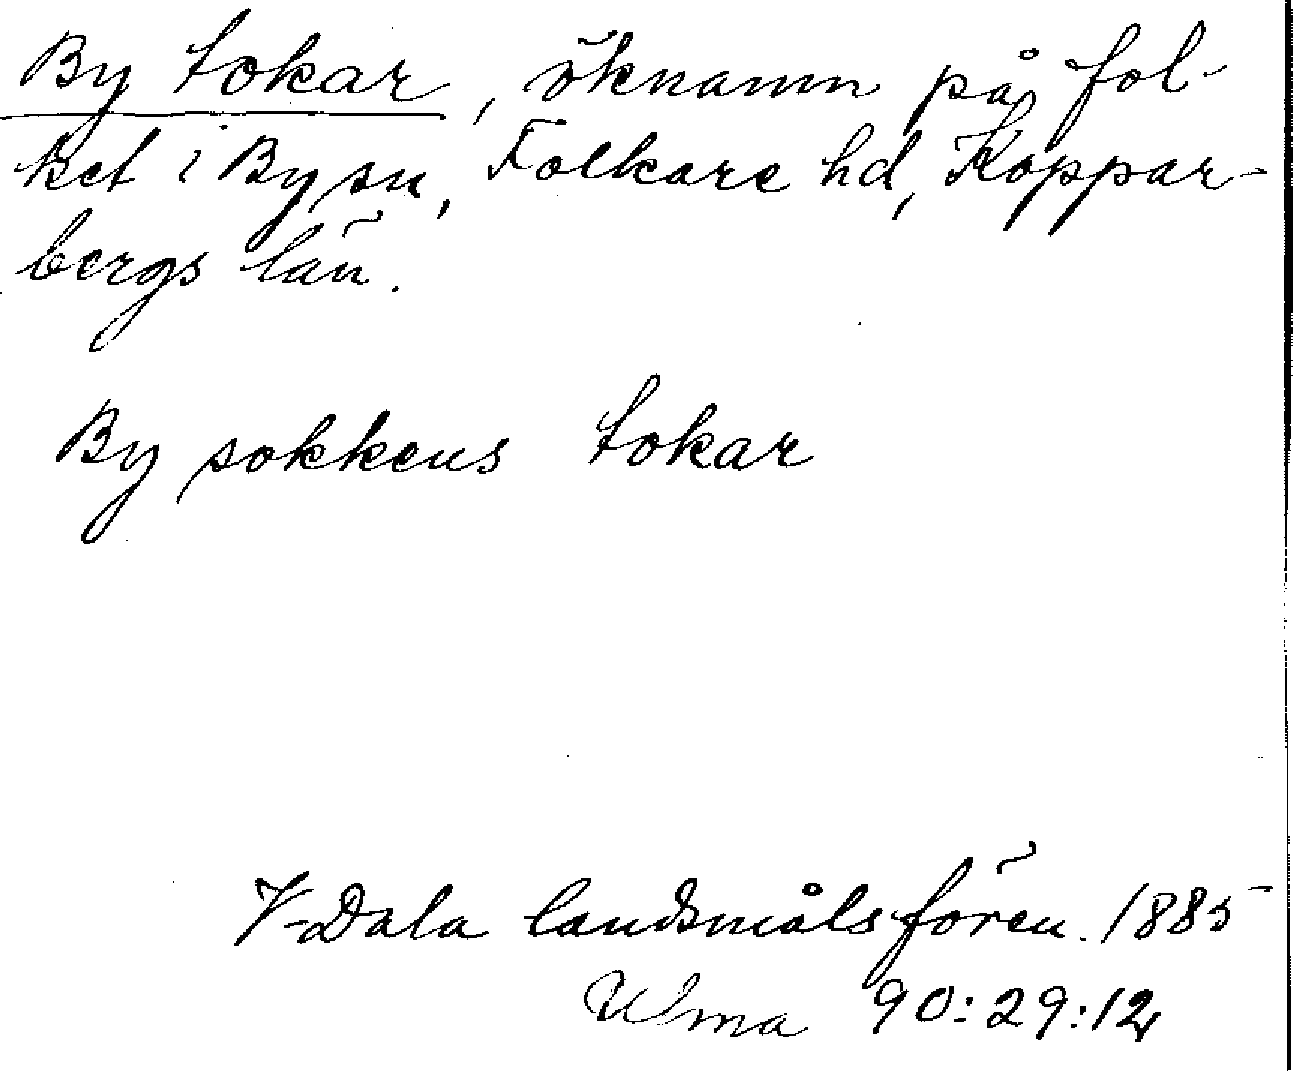 By tokar, öknamn på fol-
ket i By sn, Folkare hd, Koppar-
bergs län.
By sokkens tokar
V-Dala landsmålsfören. 1885
Ulma 90:29:12